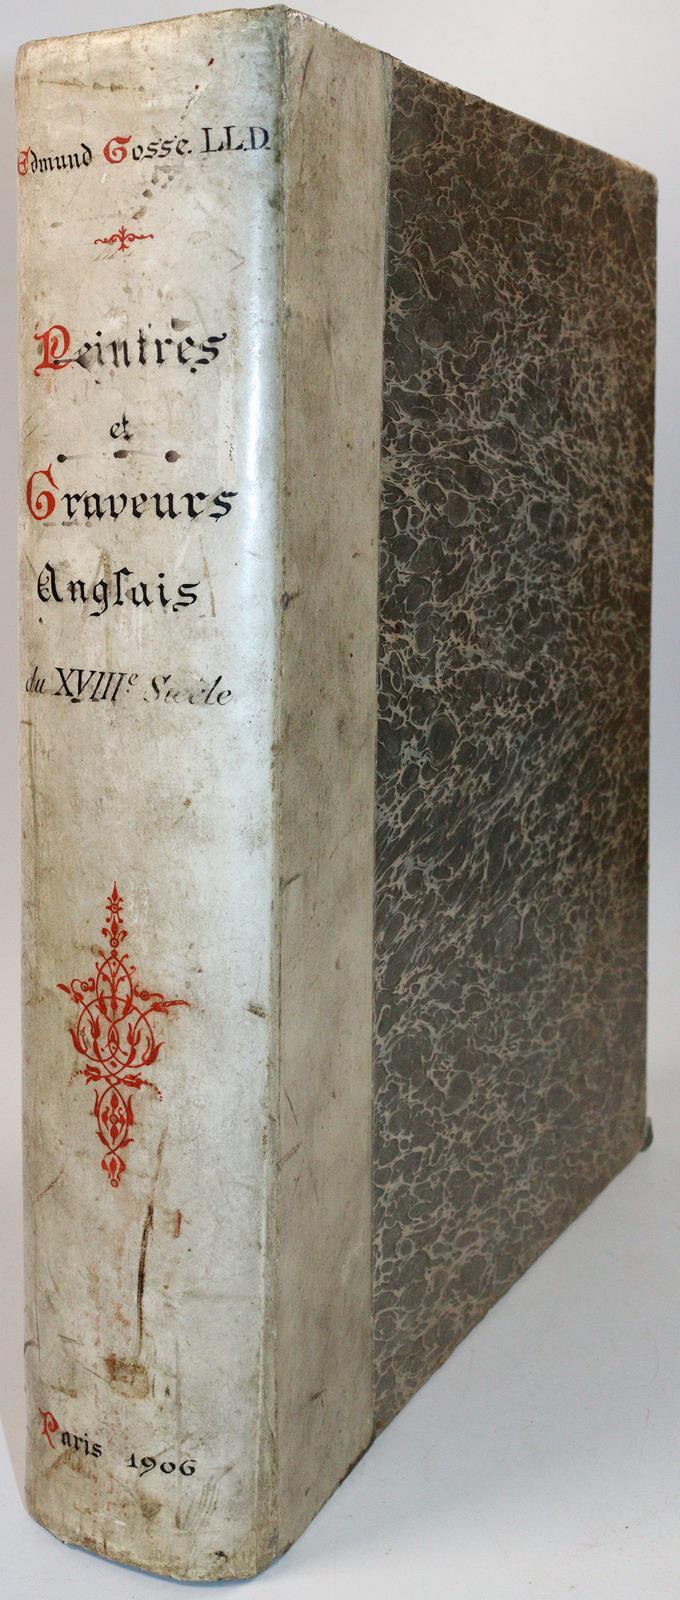 Edmund Gosse. LL.D.
Peintres
et
Graveurs
Anglais
du XVIIIe Siècle
Paris 1906